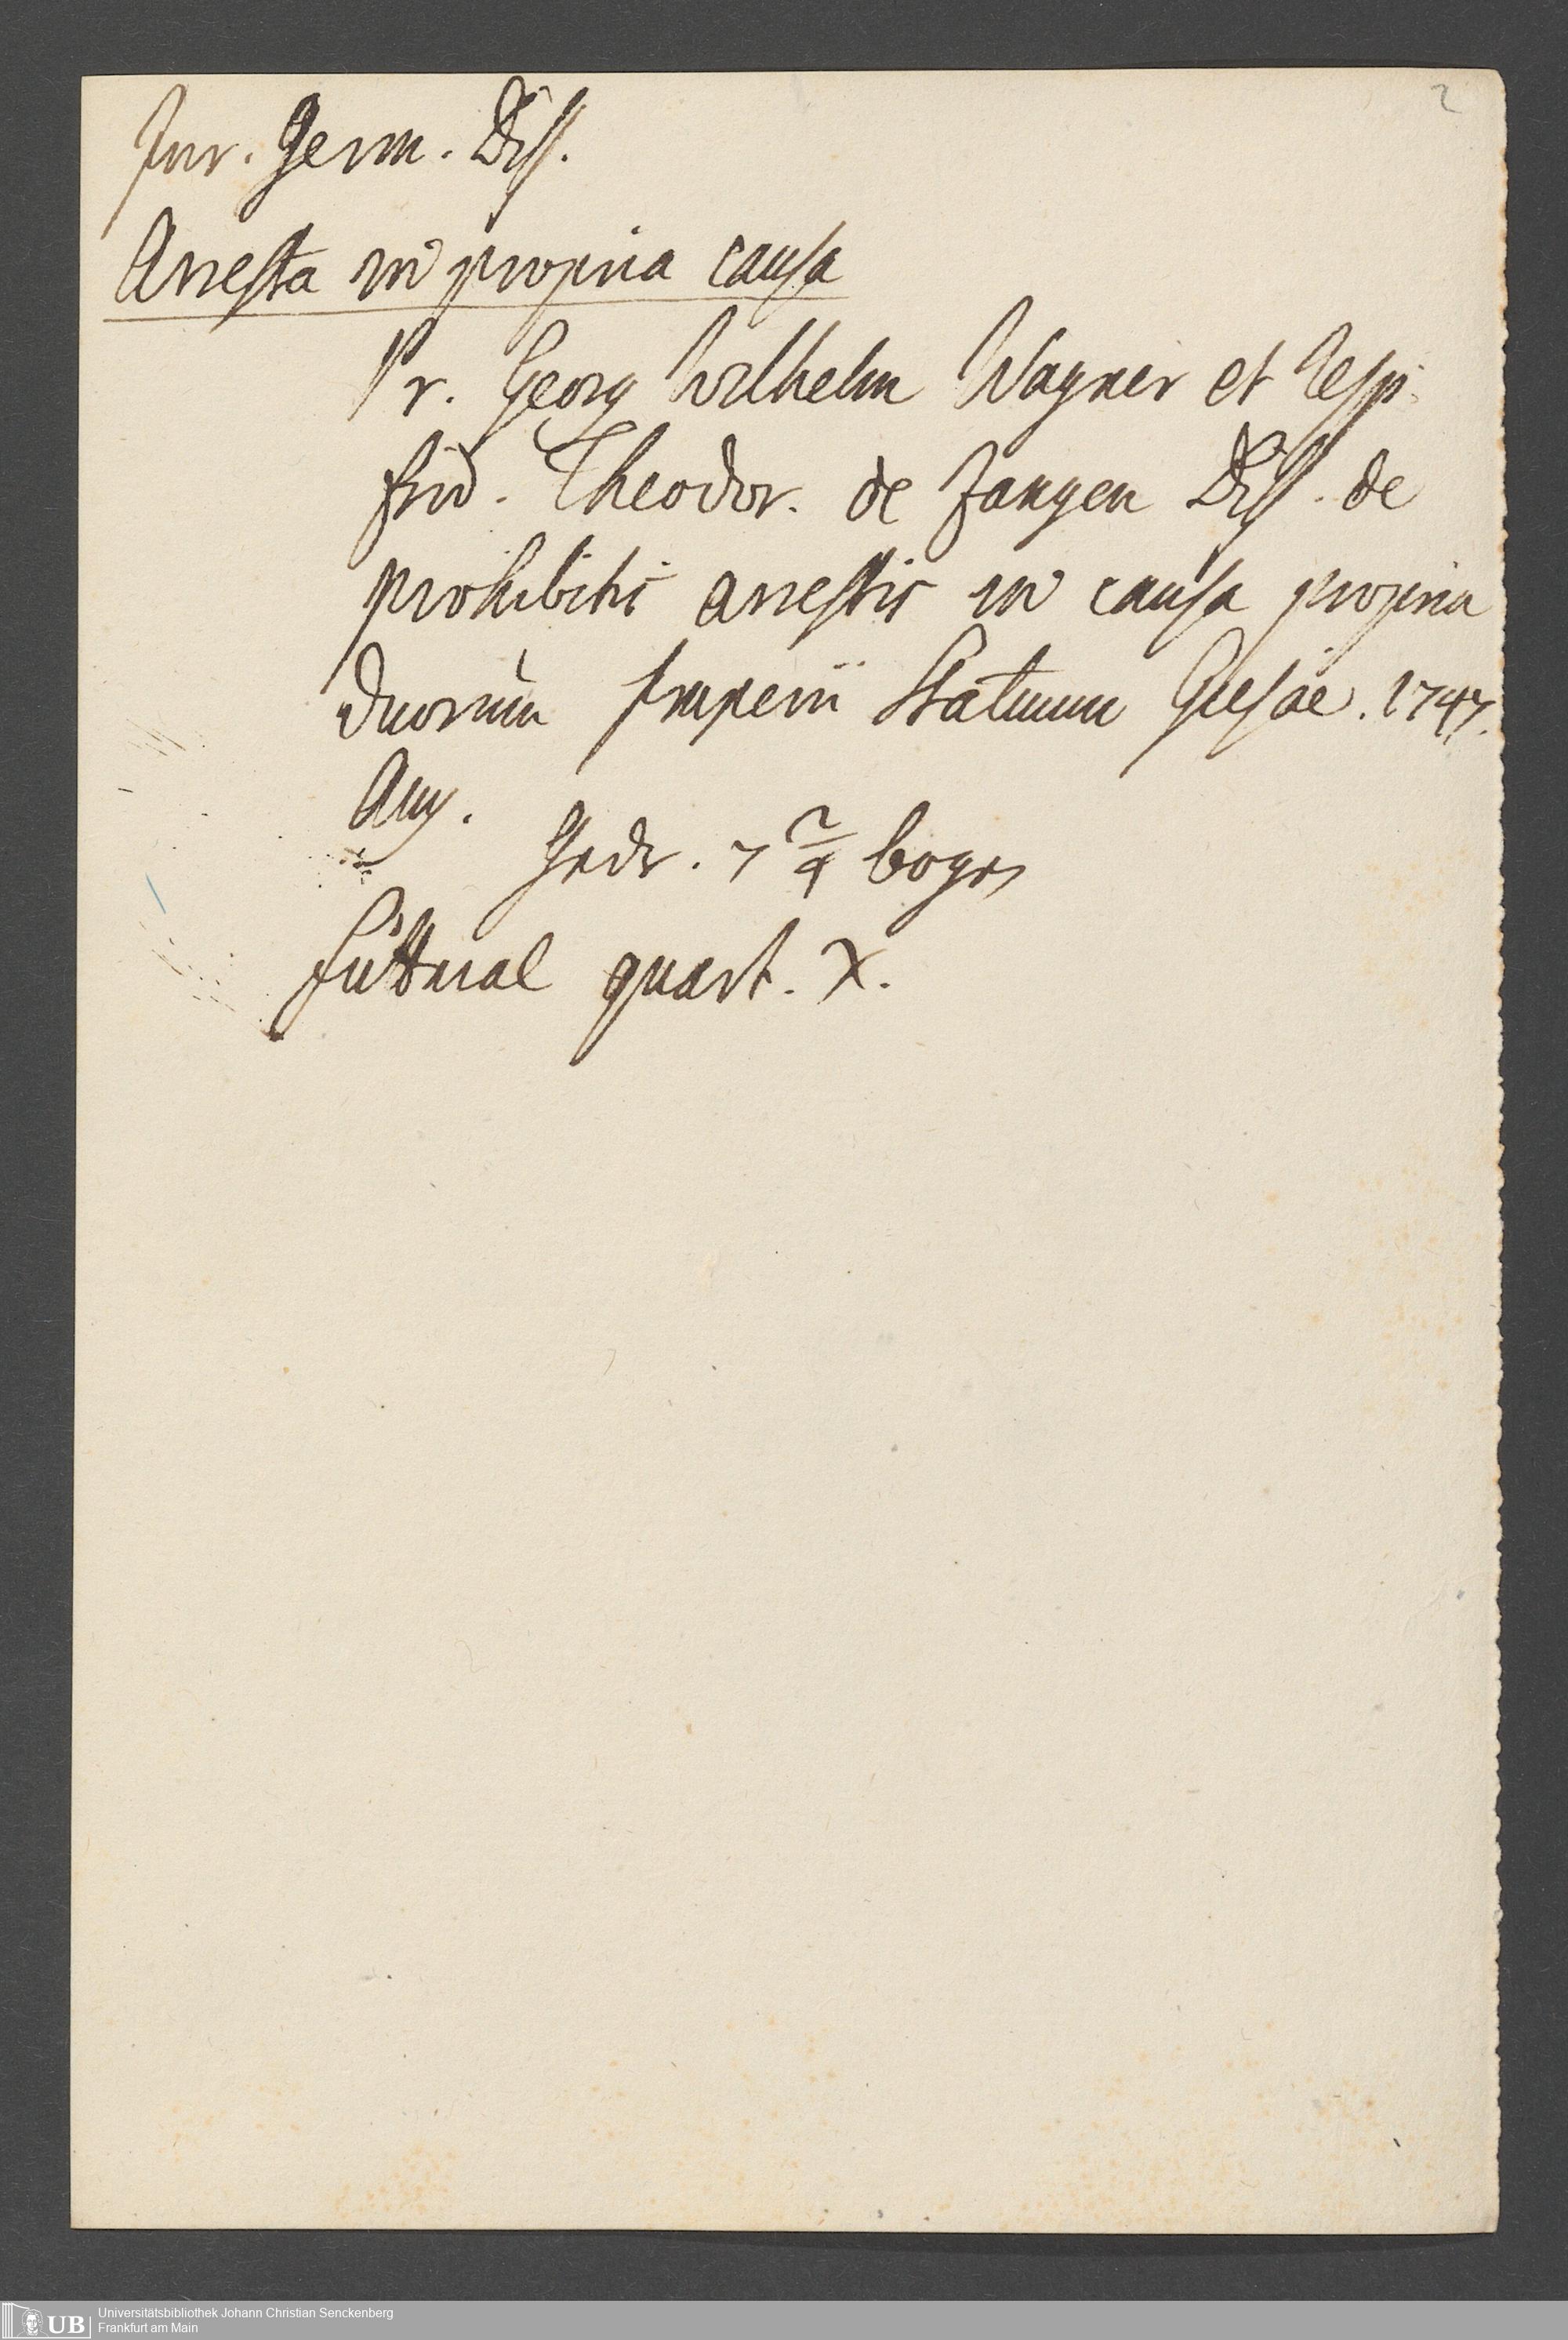 2
Jur. Germ. Diss.
Arresta in propria causa
Pr. Georg Wilhelm Wagner et Resp.
frid. Theodor. de Zangen Diss. de
prohibitis arrestis in causa propria
duorum Imperii Statuum Giesae. 1747.
Aug.
Gedr. 7 2/4 bogen
futteral quart. X.
UB
Universitätsbibliothek Johann Christian Senckenberg
Frankfurt am Main